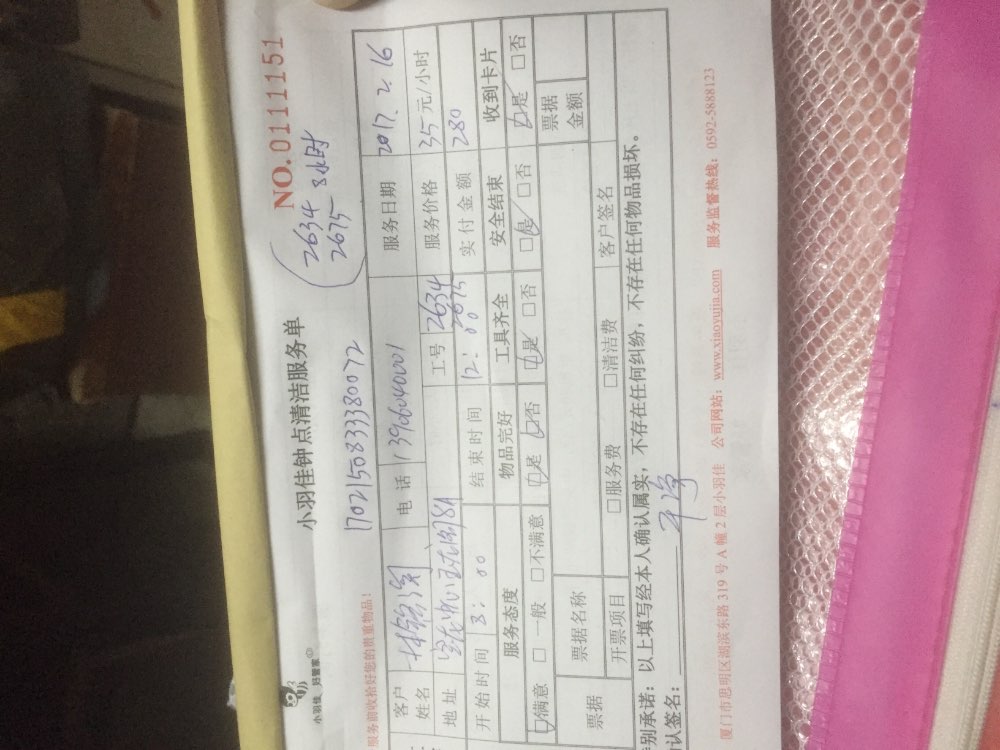 小羽佳 妇管家
小羽佳钟点清洁服务单
NO.0111151
2634 8小时
2675
1702150833380072
服务前收拾好您的贵重物品!
客户姓名 电话 13960400001 服务日期 2017.2.16
地址 工号 2634 2675 服务价格 35元/小时
开始时间 8:00 结束时间 12:00 实付金额 280
服务态度 物品完好 工具齐全 安全结束 收到卡片
☑满意 □一般 □不满意 ☑是 □否 ☑是 □否 ☑是 □否 ☑是 □否
票据 票据名称 票据金额
开票项目 □服务费 □清洁费 客户签名
别承诺:以上填写经本人确认属实,不存在任何纠纷,不存在任何物品损坏。
认签名:
厦门市思明区湖滨东路319号A幢2层小羽佳 公司网站:www.xiaoyujia.com 服务监督热线:0592-5888123